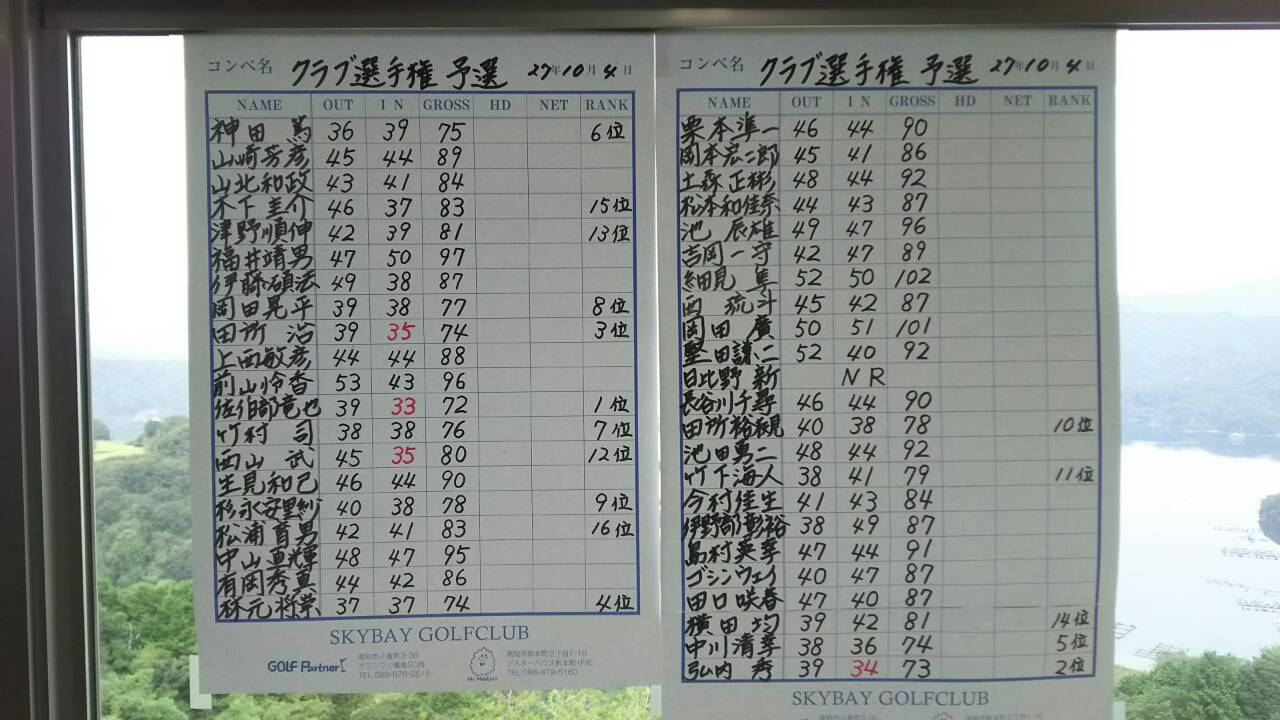 コンペ名 クラブ選手権 予選 27年10月4日
NAME OUT IN GROSS HD NET RANK
神田 篤 36 39 75 6位
山崎芳彦 45 44 89
山北和政 43 41 84
木下圭介 46 37 83 15位
津野順伸 42 39 81 13位
福井靖男 47 50 97
伊藤碩法 49 38 87
岡田晃平 39 38 77 8位
田所 治 39 35 74 3位
上西敏彦 44 44 88
前山怜香 53 43 96
佐伯部竜也 39 33 72 1位
竹村 司 38 38 76 7位
西山 武 45 35 80 12位
生見和己 46 44 90
杉永安里紗 40 38 78 9位
松浦首男 42 41 83 16位
中山直輝 48 47 95
有岡秀真 44 42 86
林元将崇 37 37 74 4位
SKYBAY GOLFCLUB
GOLF Partner
TEL 088-878-0515
アスターハウス新本町1F北
TEL 088-879-5160
コンペ名 クラブ選手権 予選 27年10月4日
NAME OUT IN GROSS HD NET RANK
栗本準一 46 44 90
岡本宏二郎 45 41 86
土森正彬 48 44 92
松本和佳奈 44 43 87
池 辰雄 49 47 96
吉岡一守 42 47 89
細見 隼 52 50 102
西 琉斗 45 42 87
岡田 廣 50 51 101
堅田謙二 52 40 92
日比野 新 NR
長谷川千尋 46 44 90
田所裕視 40 38 78 10位
池田勇二 48 44 92
竹下海人 38 41 79 11位
今村佳生 41 43 84
伊野部彰裕 38 49 87
島村英幸 47 44 91
ゴシンウェイ 40 47 87
田口咲春 47 40 87
横田 均 39 42 81 14位
中川清幸 38 36 74 5位
弘内 秀 39 34 73 2位
SKYBAY GOLFCLUB